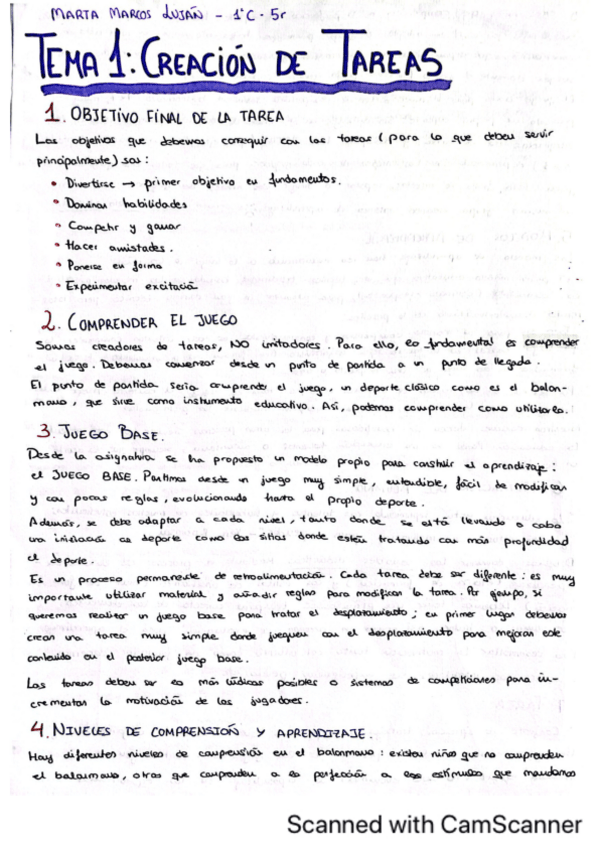 MARTA MARCOS LUJÁN - 1ºC - 5r
TEMA 1: CREACIÓN DE TAREAS
1. OBJETIVO FINAL DE LA TAREA
Los objetivos que debemos conseguir con las tareas (para lo que deben servir
principalmente) son:
• Divertirse → primer objetivo en fundamentos.
• Dominar habilidades
• Competir y ganar
• Hacer amistades.
• Ponerse en forma
• Experimentar excitación
2. COMPRENDER EL JUEGO
Somos creadores de tareas, NO imitadores. Para ello, es fundamental es comprender
el juego. Debemos comenzar desde un punto de partida a un punto de llegada.
El punto de partida sería comprender el juego, un deporte clásico como es el balon-
mano, que sirve como instrumento educativo. Así, podemos comprender como utilizarlo.
3. JUEGO BASE.
Desde la asignatura se ha propuesto un modelo propio para construir el aprendizaje:
el JUEGO BASE. Partimos desde un juego muy simple, entendible, fácil de modificar
y con pocas reglas, evolucionando hasta el propio deporte.
Además, se debe adaptar a cada nivel, tanto donde se está llevando a cabo
una iniciación al deporte como los sitios donde estén tratando con más profundidad
el deporte.
Es un proceso permanente de retroalimentación. Cada tarea debe ser diferente: es muy
importante utilizar material y añadir reglas para modificar la tarea. Por ejemplo, si
queremos realizar un juego base para tratar el desplazamiento; en primer lugar debemos
crear una tarea muy simple donde jueguen con el desplazamiento para mejorar este
contenido en el posterior juego base.
Las tareas deben ser lo más lúdicas posibles o sistemas de competiciones para in-
crementar la motivación de los jugadores.
4. NIVELES DE COMPRENSIÓN Y APRENDIZAJE.
Hay diferentes niveles de comprensión en el balonmano: existen niños que no comprenden
el balonmano, otros que comprenden a la perfección a los estímulos que mandamos
Scanned with CamScanner